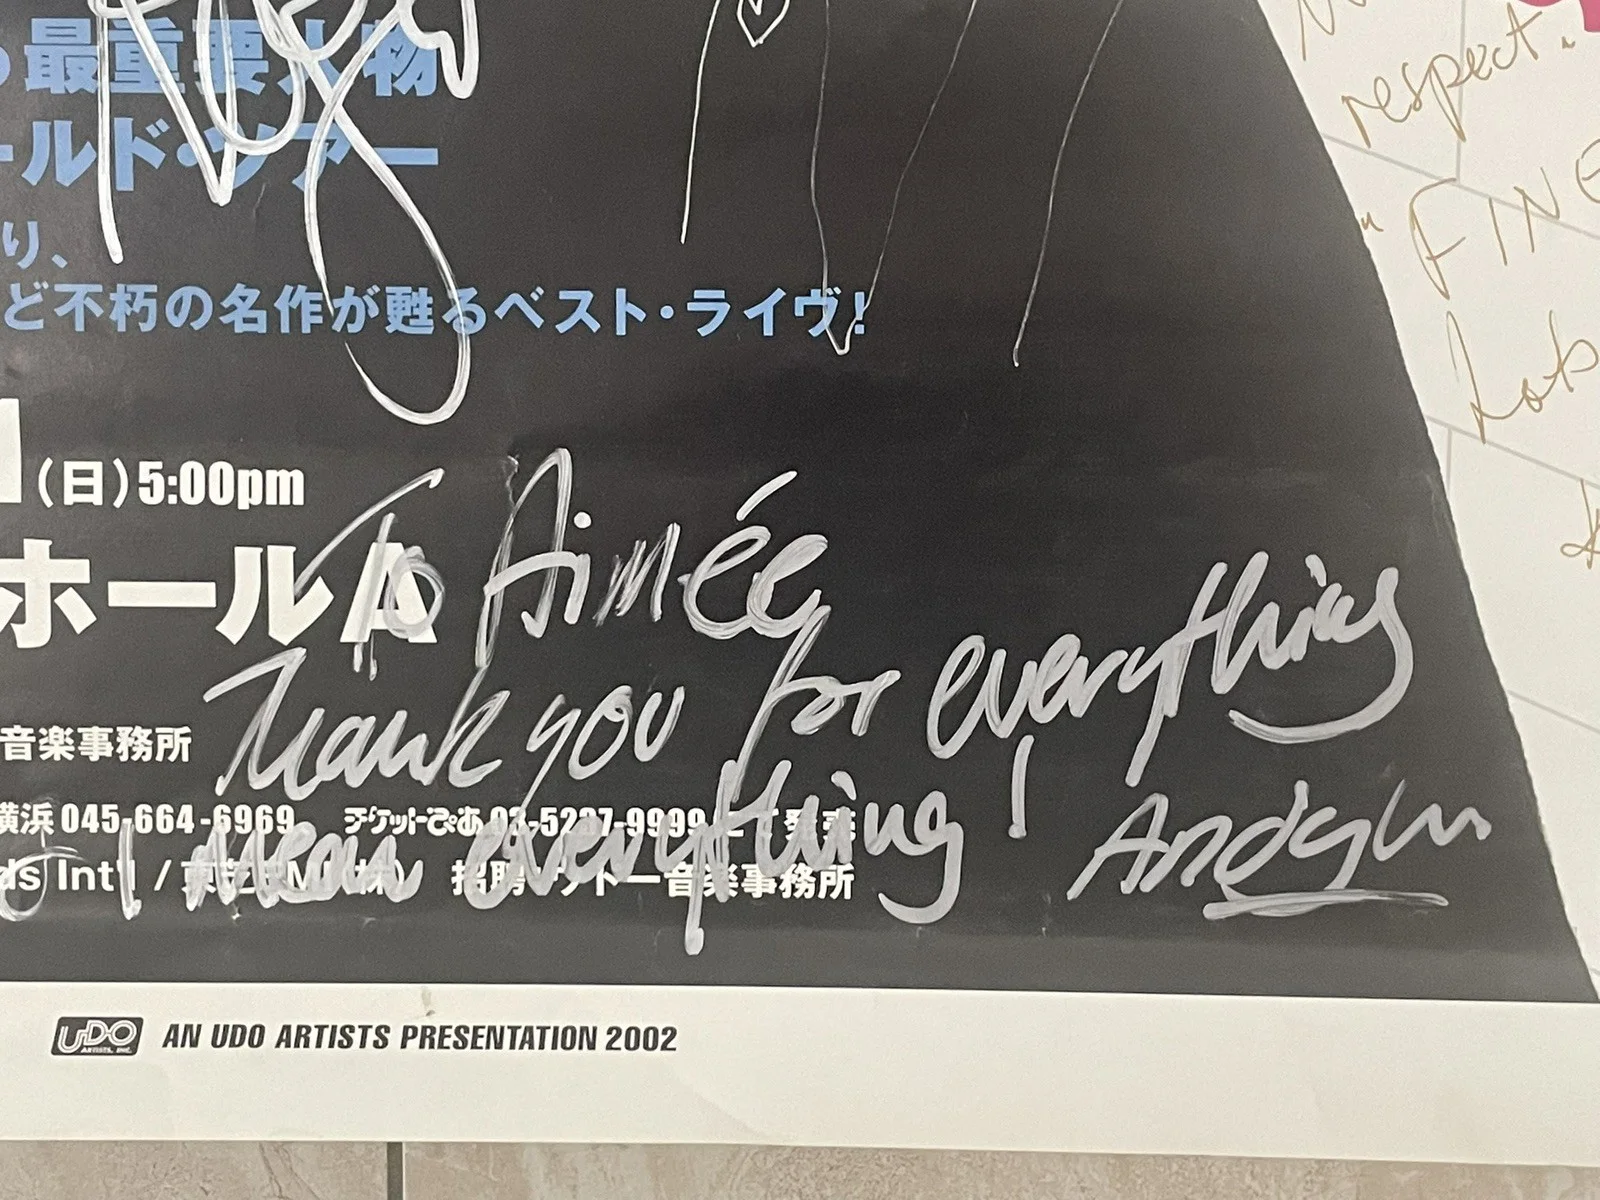 最重要人物
ールド・ツアー
り、
ど不朽の名作が甦るベスト・ライヴ!
respect.
"FINE
(日)5:00pm
ホールA
To Aimée
Thank you for everything
I mean everything!
Andy
音楽事務所
横浜 045-664-6969 チケットぴあ 03-5237-9999 にて発売
ds Int'l / 東芝EMI(株) 招聘 ウドー音楽事務所
UDO ARTISTS, INC.
AN UDO ARTISTS PRESENTATION 2002